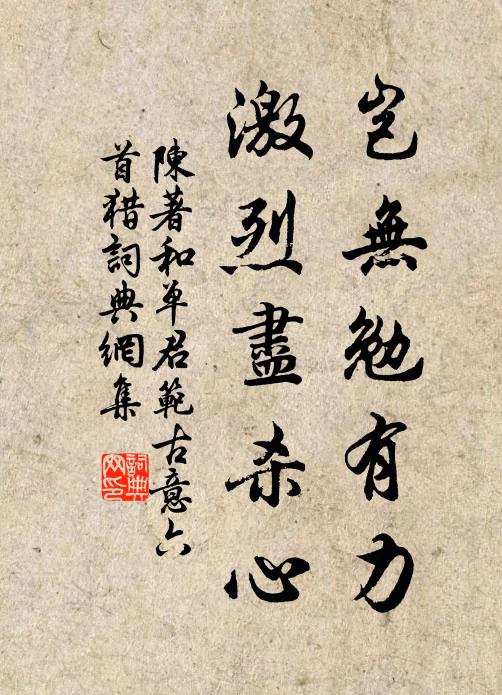 豈無勉有力
激烈盡杀心
陳著和单君範古意六
首猎詞典網集
詞典
网印